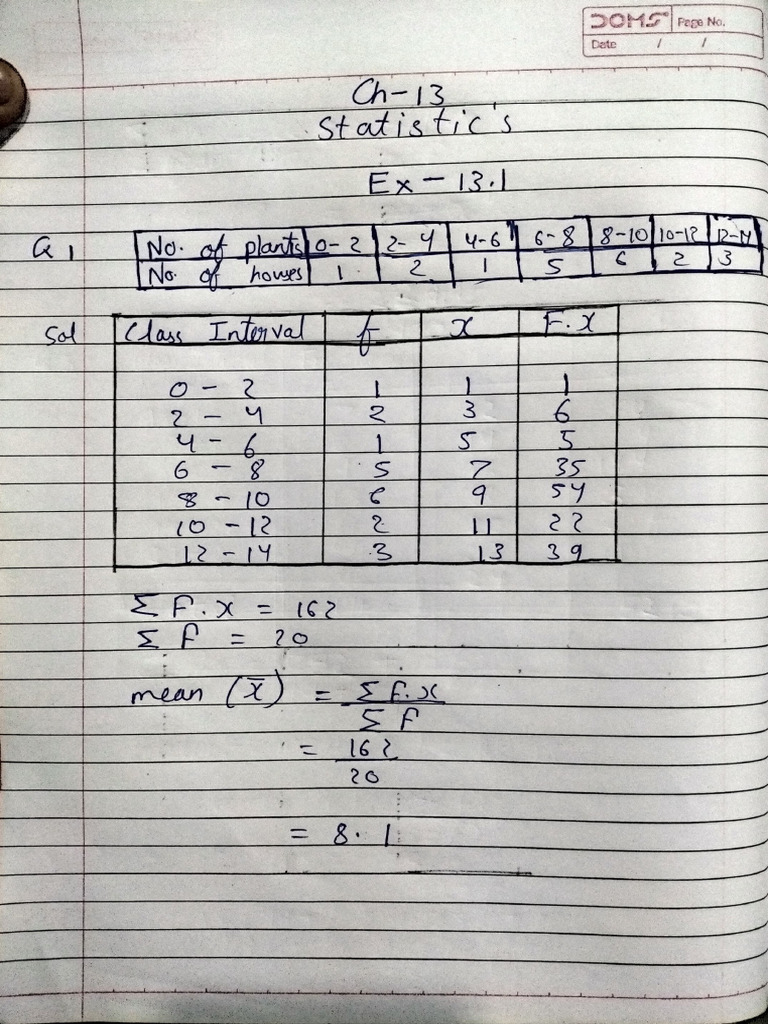 DOMS Page No.
Date / /
Ch-13
Statistic's
Ex - 13.1
Q 1 No. of plants 0-2 2-4 4-6 6-8 8-10 10-12 12-14
No. of houses 1 2 1 5 6 2 3
Sol Class Interval f x F.x
0 - 2 1 1 1
2 - 4 2 3 6
4 - 6 1 5 5
6 - 8 5 7 35
8 - 10 6 9 54
10 - 12 2 11 22
12 - 14 3 13 39
Σ F.x = 162
Σ F = 20
mean (x̄) = Σ F.x
Σ F
= 162
20
= 8.1